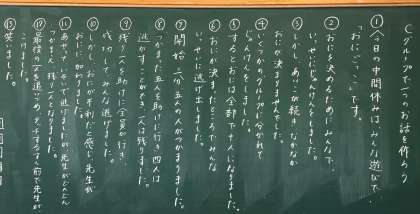 Cグループで一つのお話を作ろう
①今日の中間休みはみんな遊びで、
「おにごっこ」です。
②おにを決めるために、みんなで、
いっせいにじゃんけんをしました。
③しかし、あいこが続いて、なかなか
おにが決まりませんでした。
④いくつかのグループに分かれて
じゃんけんをしました。
⑤するとおには全部で十人になりました。
⑥おにが決まったところでみんな
いっせいに逃げ出しました。
⑦開始二分、五人の人がつかまりました。
⑧つかまった五人を助けに行き四人は
残すことができ一人は残りました。
⑨残り一人を助けに全員が行き、
成功してみんな逃げました。
⑩しかし、おにが不利だと感じ、先生が
おにに加わりました。
⑪あせっていそいで逃げましたが、先生がどんどん
つかまえ、残り一人となりました。
⑫最後の一人を追いつめ、タッチするすん前で先生が
こけました。
⑬笑いました。